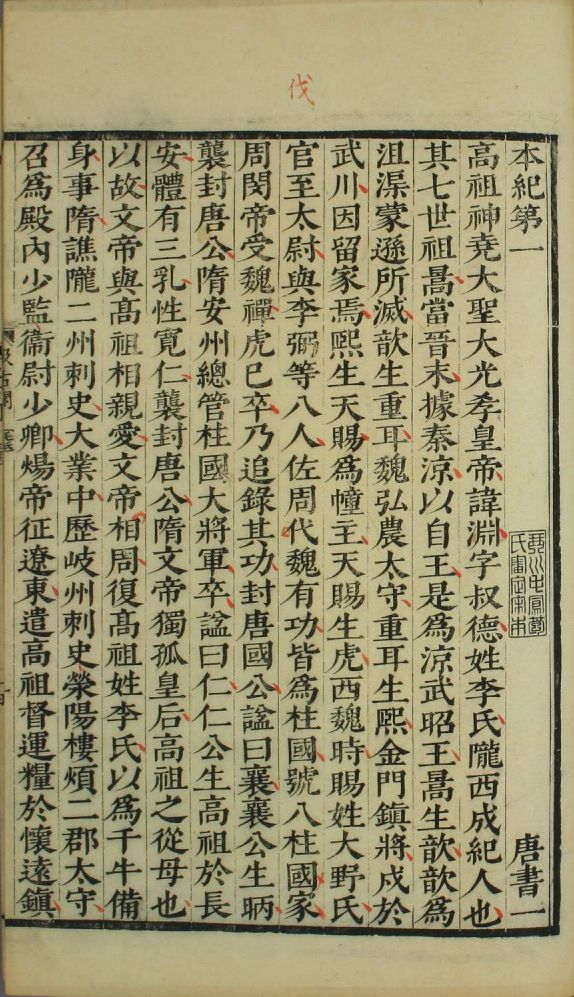 伐
本紀第一 唐書一
高祖神堯大聖大光孝皇帝諱淵字叔德姓李氏隴西成紀人也
其七世祖暠當晉末據秦涼以自王是為涼武昭王暠生歆歆為
沮渠蒙遜所滅歆生重耳魏弘農太守重耳生熙金門鎮將戍於
武川因留家焉熙生天賜為幢主天賜生虎西魏時賜姓大野氏
官至太尉與李弼等八人佐周代魏有功皆為柱國號八柱國家
周閔帝受魏禪虎已卒乃追錄其功封唐國公謚曰襄襄公生昞
襲封唐公隋安州總管柱國大將軍卒謚曰仁仁公生高祖於長
安體有三乳性寬仁襲封唐公隋文帝獨孤皇后高祖之從母也
以故文帝與高祖相親愛文帝相周復高祖姓李氏以為千牛備
身事隋譙隴二州刺史大業中歷岐州刺史滎陽樓煩二郡太守
召為殿內少監衞尉少卿煬帝征遼東遣高祖督運糧於懷遠鎮